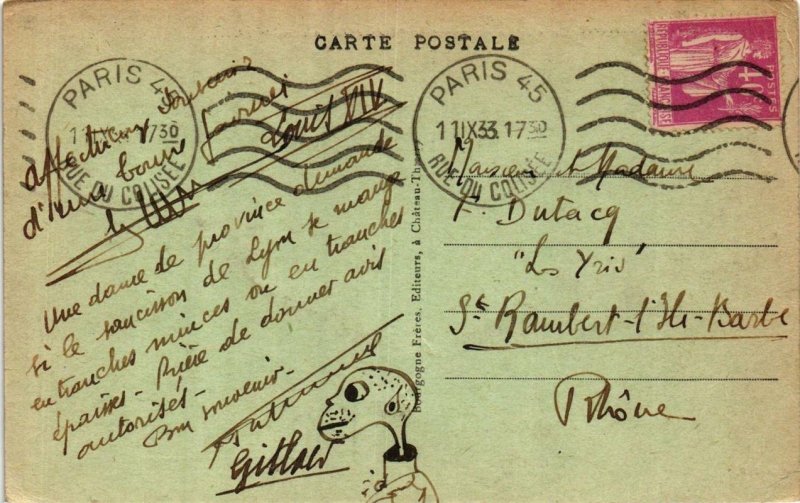 CARTE POSTALE
PARIS 45
11 IX 33 17 30
RUE DU COLISÉE
PARIS 45
11 IX 33 17 30
RUE DU COLISÉE
RÉPUBLIQUE FRANÇAISE
POSTES
affectueux
d'une bonne journée
Louis XIV
Une dame de province demande
si le saucisson de Lyon se mange
en tranches minces ou en tranches
épaisses - Prière de donner avis
autorisés -
Bon souvenir -
Bourgogne Frères, Editeurs, à Château-Thierry
Monsieur et Madame
F. Dutacq
"Les Yris"
St Rambert-l'Ile-Barbe
Rhône